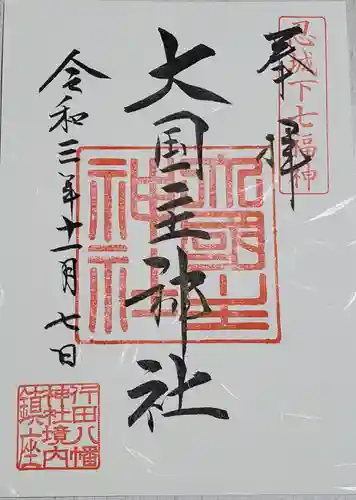 忍城下七福神
奉拝
大国主神社
大國主神社
令和三年十一月七日
行田八幡
神社境内
鎮座